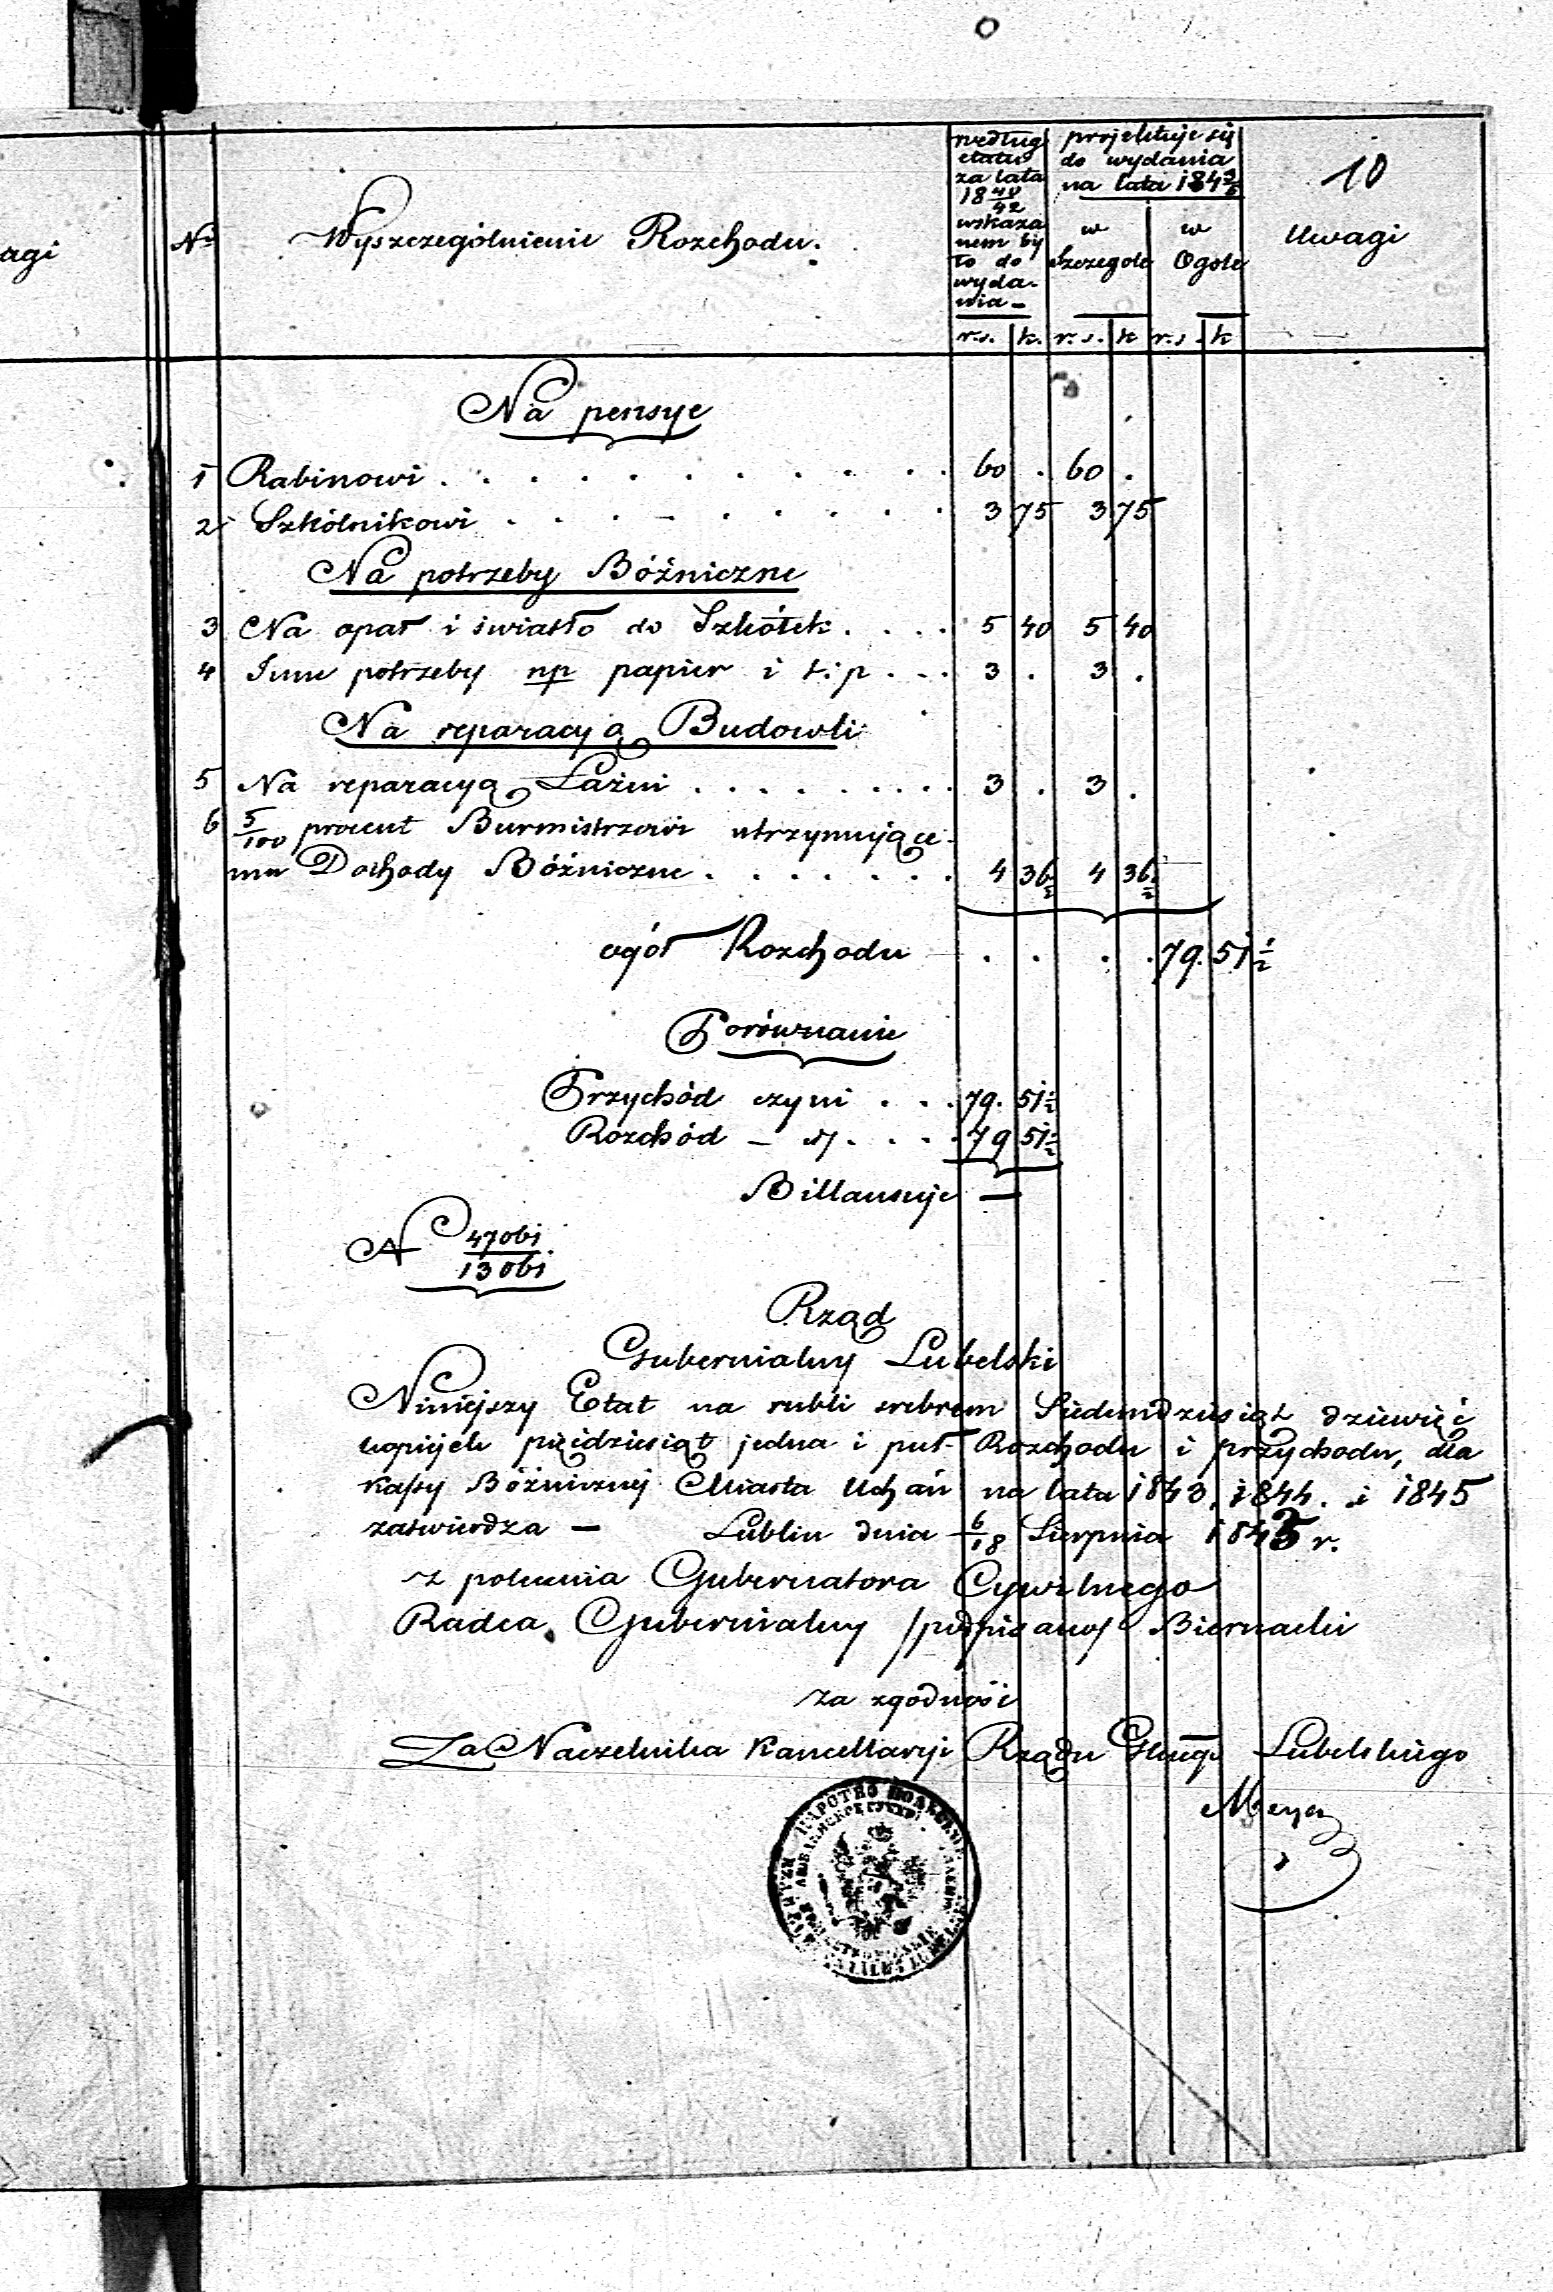 10
agi
N°
Wyszczególnienie Rozchodu.
według etatu za lata 18 40/42 wskazanem było do wydania –
projektuje się do wydania na lata 184 3/5
w Szczegole
w Ogole
Uwagi
r.s. k. r.s. k r.s. k
Na pensye
1 Rabinowi . . . . . . . . . . . 60 . 60 .
2 Szkólnikowi . . . . . . . . . . 3 75 3 75
Na potrzeby Bóżniczne
3 Na opał i światło do Szkółek . . . . 5 40 5 40
4 Inne potrzeby np papier i t.p . . . 3 . 3 .
Na reparacyą Budowli
5 Na reparacyą Łaźni . . . . . . . . . 3 . 3 .
6 5/100 procent Burmistrzowi utrzymujące-
mu Dochody Bóżniczne . . . . . . . 4 36½ 4 36½
ogół Rozchodu . . . . 79. 51½
Porównanie
Przychód czyni . . . 79. 51½
Rozchód – „ . . . . 79 51½
Billansuje —
N 47061/13061
Rząd
Gubernialny Lubelski
Niniejszy Etat na rubli srebrem Siedmdziesiąt dziewięć
kopijek pięidziesiąt jedna i puł Rozchodu i przychodu, dla
kassy Bóżniczney Miasta Uchań na lata 1843, 1844. i 1845
zatwierdza — Lublin dnia 6/18 Sierpnia 1843 r.
z polecenia Gubernatora Cywilnego
Radca Gubernialny /podpisany/ Biernacki
Za zgodność
Za Naczelnika Kancellaryi Rządu Gbugo Lubelskiego
Meyer